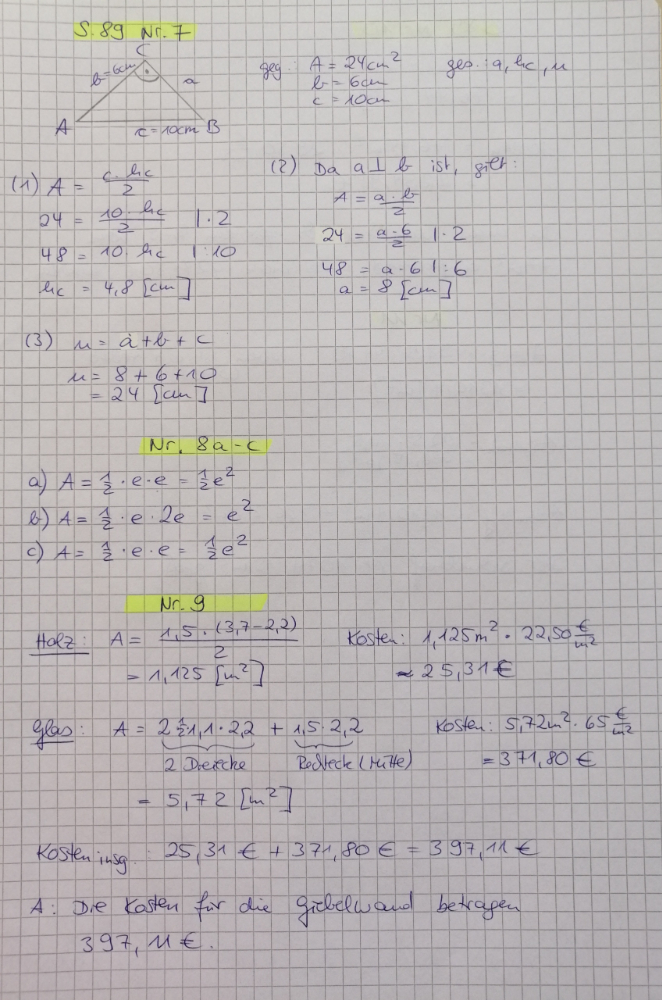 S. 89 Nr. 7
C
b=6cm
a
A
c=10cm
B
geg.: A = 24cm² ges.: a, hc, u
b = 6cm
c = 10cm
(1) A = c·hc/2
24 = 10·hc/2 |·2
48 = 10·hc |:10
hc = 4,8 [cm]
(2) Da a⊥b ist, gilt:
A = a·b/2
24 = a·6/2 |·2
48 = a·6 |:6
a = 8 [cm]
(3) u = a+b+c
u = 8+6+10
= 24 [cm]
Nr. 8a-c
a) A = 1/2·e·e = 1/2e²
b) A = 1/2·e·2e = e²
c) A = 1/2·e·e = 1/2e²
Nr. 9
Holz: A = 1,5·(3,7-2,2)/2 Kosten: 1,125m²·22,50 €/m²
= 1,125 [m²] ≈ 25,31€
Glas: A = 2·1/2·1,1·2,2 + 1,5·2,2 Kosten: 5,72m²·65 €/m²
2 Dreiecke Rechteck (Mitte) = 371,80 €
= 5,72 [m²]
Kosten insg.: 25,31 € + 371,80 € = 397,11 €
A: Die Kosten für die Giebelwand betragen
397,11 €.